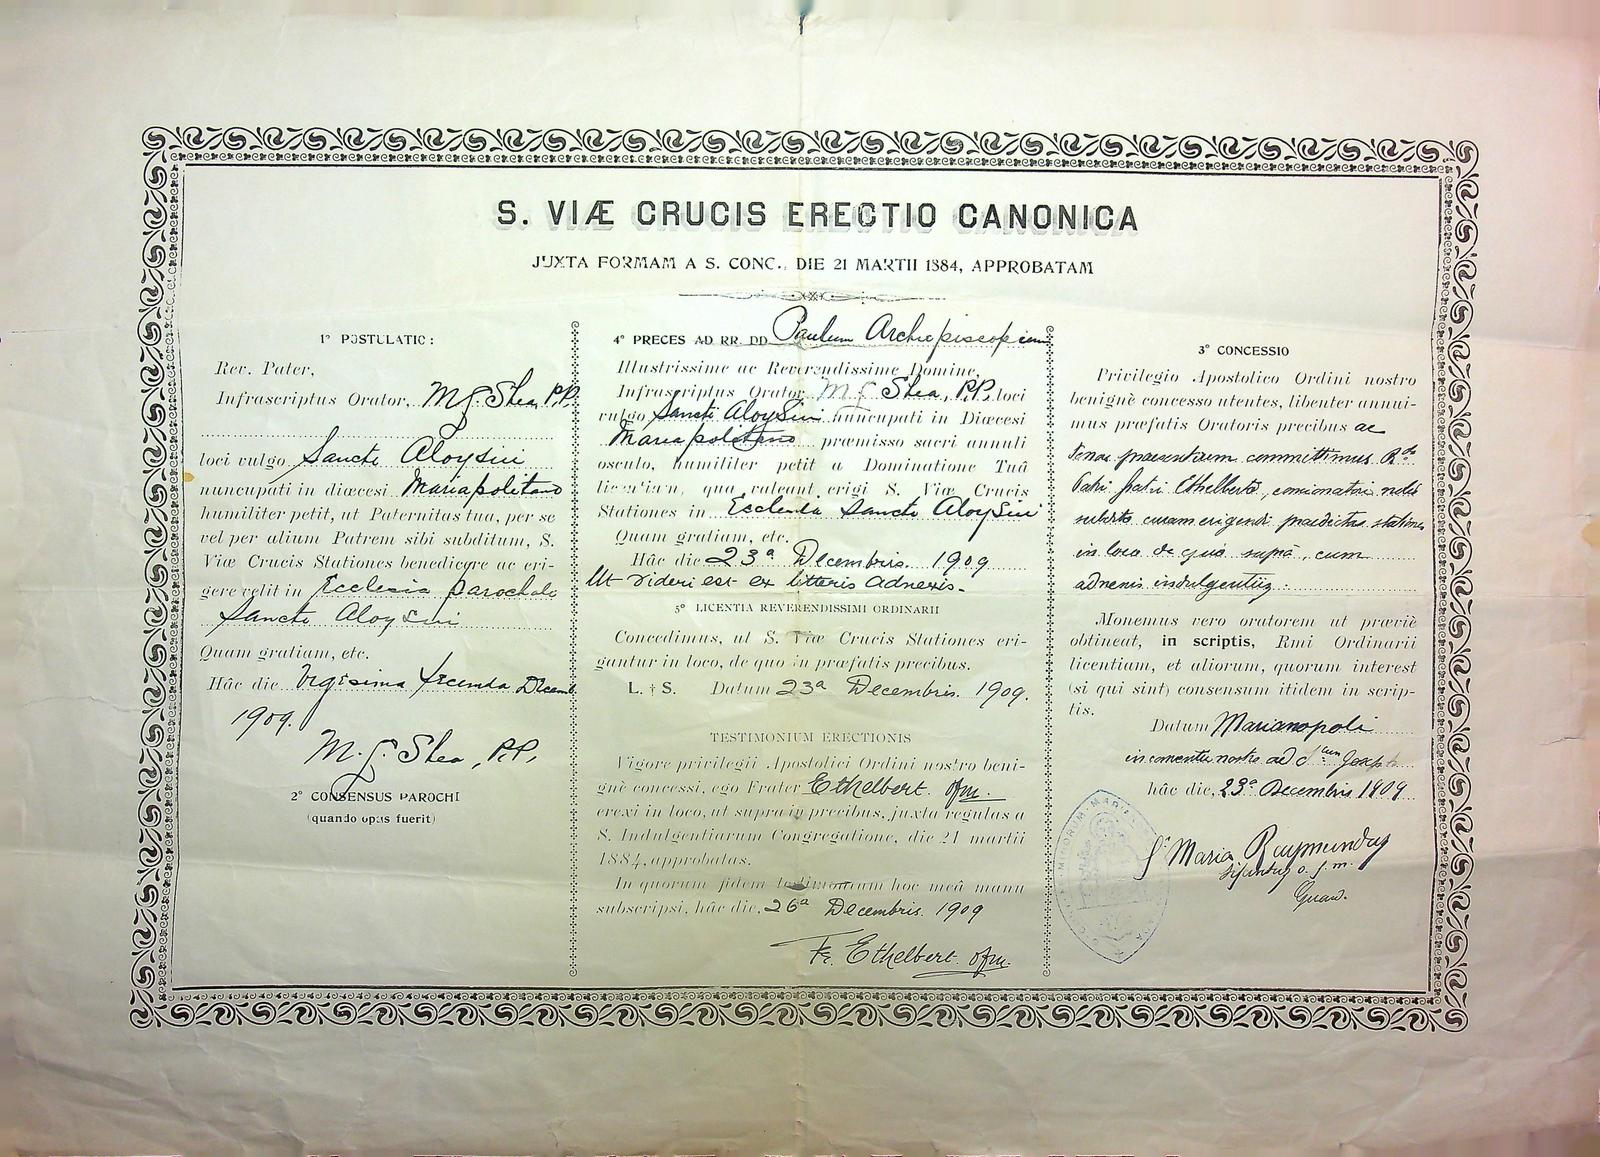 S. VIÆ CRUCIS ERECTIO CANONICA
JUXTA FORMAM A S. CONC., DIE 21 MARTII 1884, APPROBATAM
1° POSTULATIO :
Rev. Pater,
Infrascriptus Orator, M. J. Shea, P.P.
loci vulgo Sancti Aloysii
nuncupati in diœcesi Mariapolitano
humiliter petit, ut Paternitas tua, per se
vel per alium Patrem sibi subditum, S.
Viæ Crucis Stationes benedicere ac eri-
gere velit in Ecclesia parochale
Sancti Aloysii
Quam gratiam, etc.
Hâc die Vigesima Decemb
1909.
M. J. Shea, P.P.
2° CONSENSUS PAROCHI
(quando opus fuerit)
4° PRECES AD RR. DD Paulum Archiepiscopum
Illustrissime ac Reverendissime Domine,
Infrascriptus Orator M. J. Shea, P.P., loci
vulgo Sancti Aloysii nuncupati in Diœcesi
Mariapolitano præmisso sacri annuli
osculo, humiliter petit a Dominatione Tuâ
licentiam, qua valeant erigi S. Viæ Crucis
Stationes in Ecclesia Sancti Aloysii
Quam gratiam, etc.
Hâc die 23a Decembris. 1909
Ut videri est ex litteris adnexis.
5° LICENTIA REVERENDISSIMI ORDINARII
Concedimus, ut S. Viæ Crucis Stationes eri-
gantur in loco, de quo in præfatis precibus.
L. † S. Datum 23a Decembris. 1909.
TESTIMONIUM ERECTIONIS
Vigore privilegii Apostolici Ordini nostro beni-
gnè concessi, ego Frater Ethelbert. ofm.
erexi in loco, ut supra in precibus, juxta regulas a
S. Indulgentiarum Congregatione, die 21 martii
1884, approbatas.
In quorum fidem testimonium hoc meâ manu
subscripsi, hâc die, 26a Decembris. 1909
Fr. Ethelbert. ofm.
3° CONCESSIO
Privilegio Apostolico Ordini nostro
benignè concesso utentes, libenter annui-
mus præfatis Oratoris precibus ac
praesentium committimus Rdo
Patri fratri Ethelberto, concionatori nobis
subdito curam erigendi praedictas stationes
in loco de quo supra, cum
adnexis indulgentiis.
Monemus vero oratorem ut præviè
obtineat, in scriptis, Rmi Ordinarii
licentiam, et aliorum, quorum interest
(si qui sint) consensum itidem in scrip-
tis.
Datum Marianopoli
in conventu nostro ad Sum Joseph
hâc die, 23a Decembris 1909
fr. Maria Raymundus
o. f. m.
Guard.